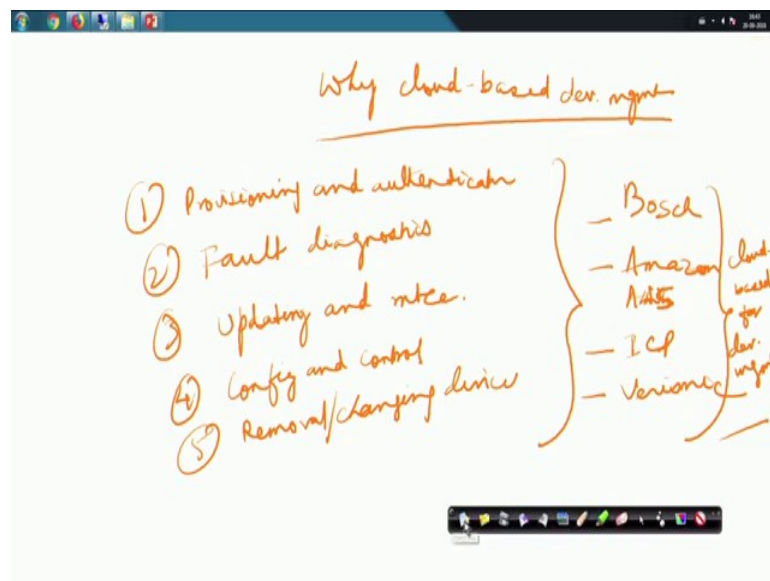 Why cloud-based dev. mgmt
1 Provisioning and authentication
2 Fault diagnostics
3 Updating and mtce.
4 Config and control
5 Removal/changing device
- Bosch
- Amazon
- ICP
cloud-
based
for
dev.
mgmt